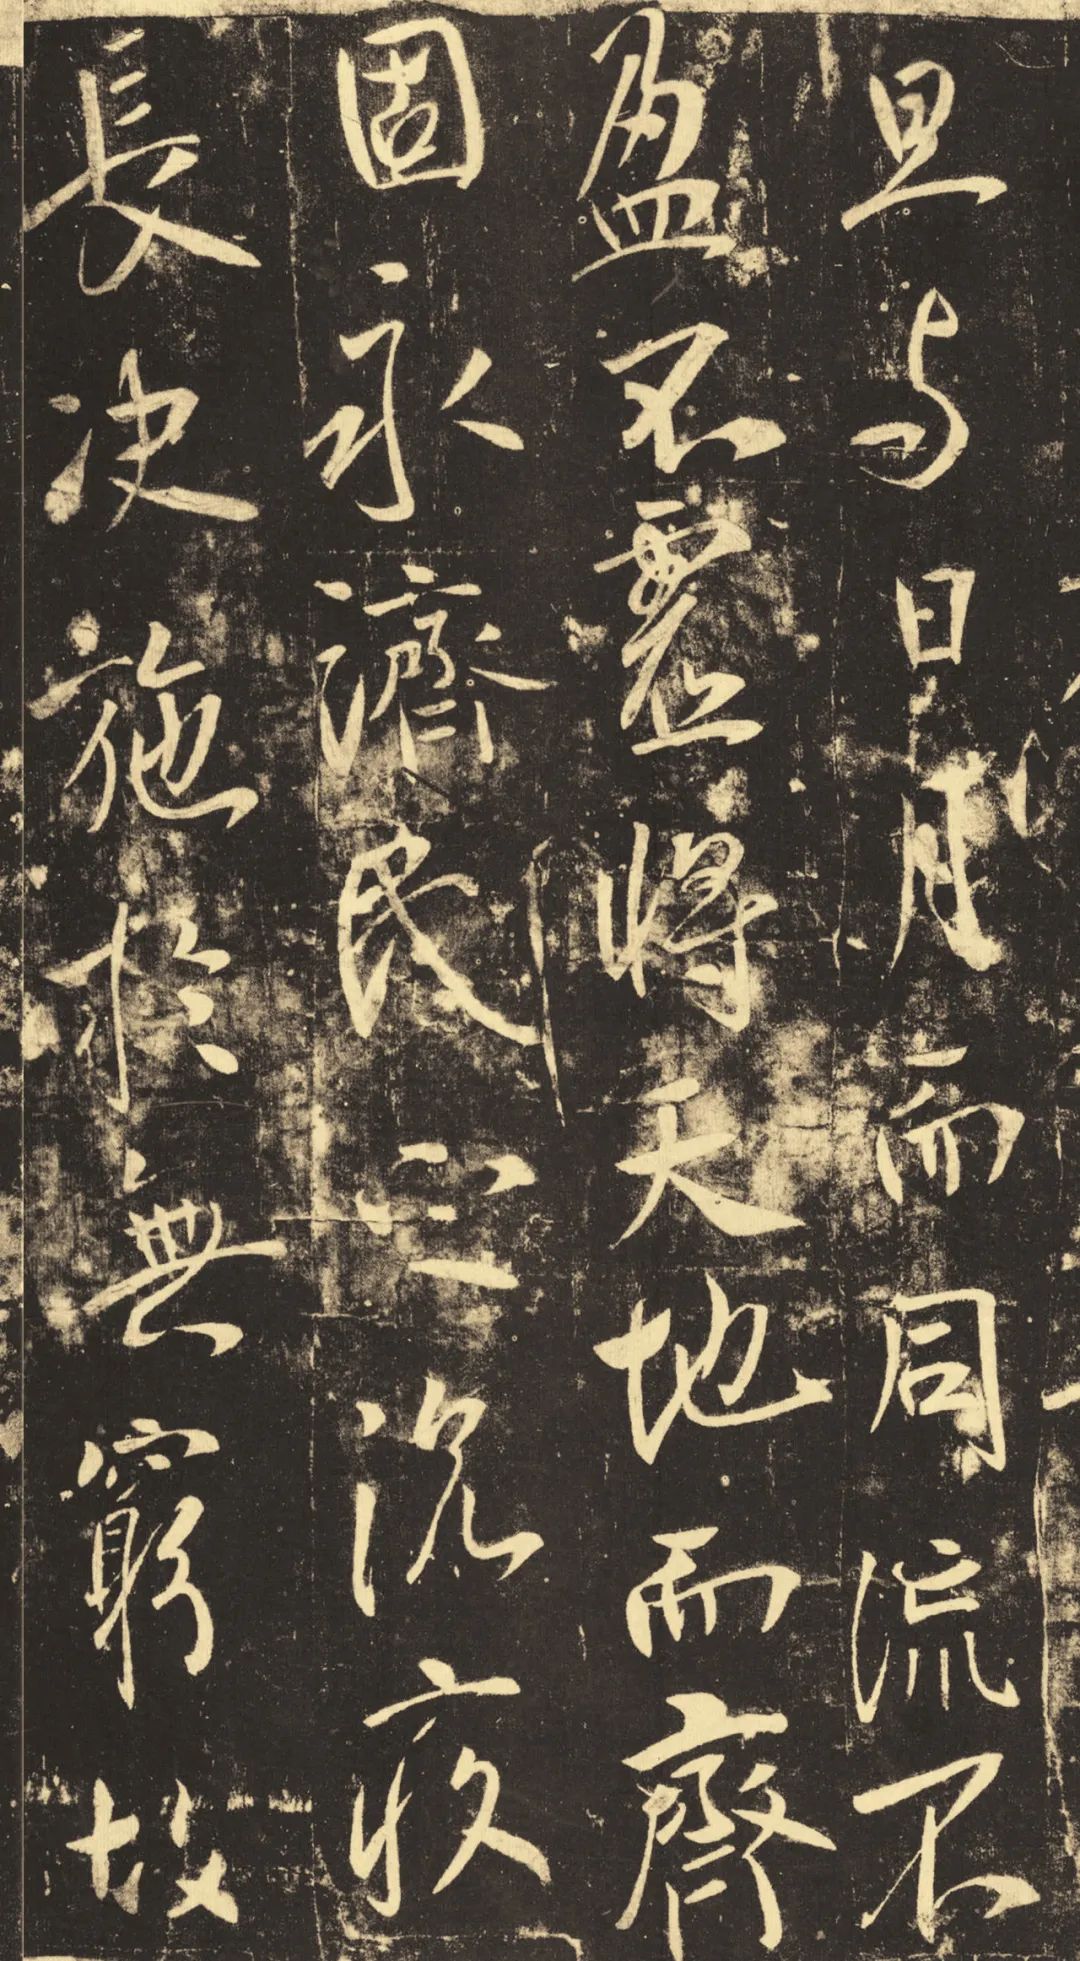 旦与日月而同流不
盈不虛將天地而齊
固永濟民之沉疾
長決施於無窮故